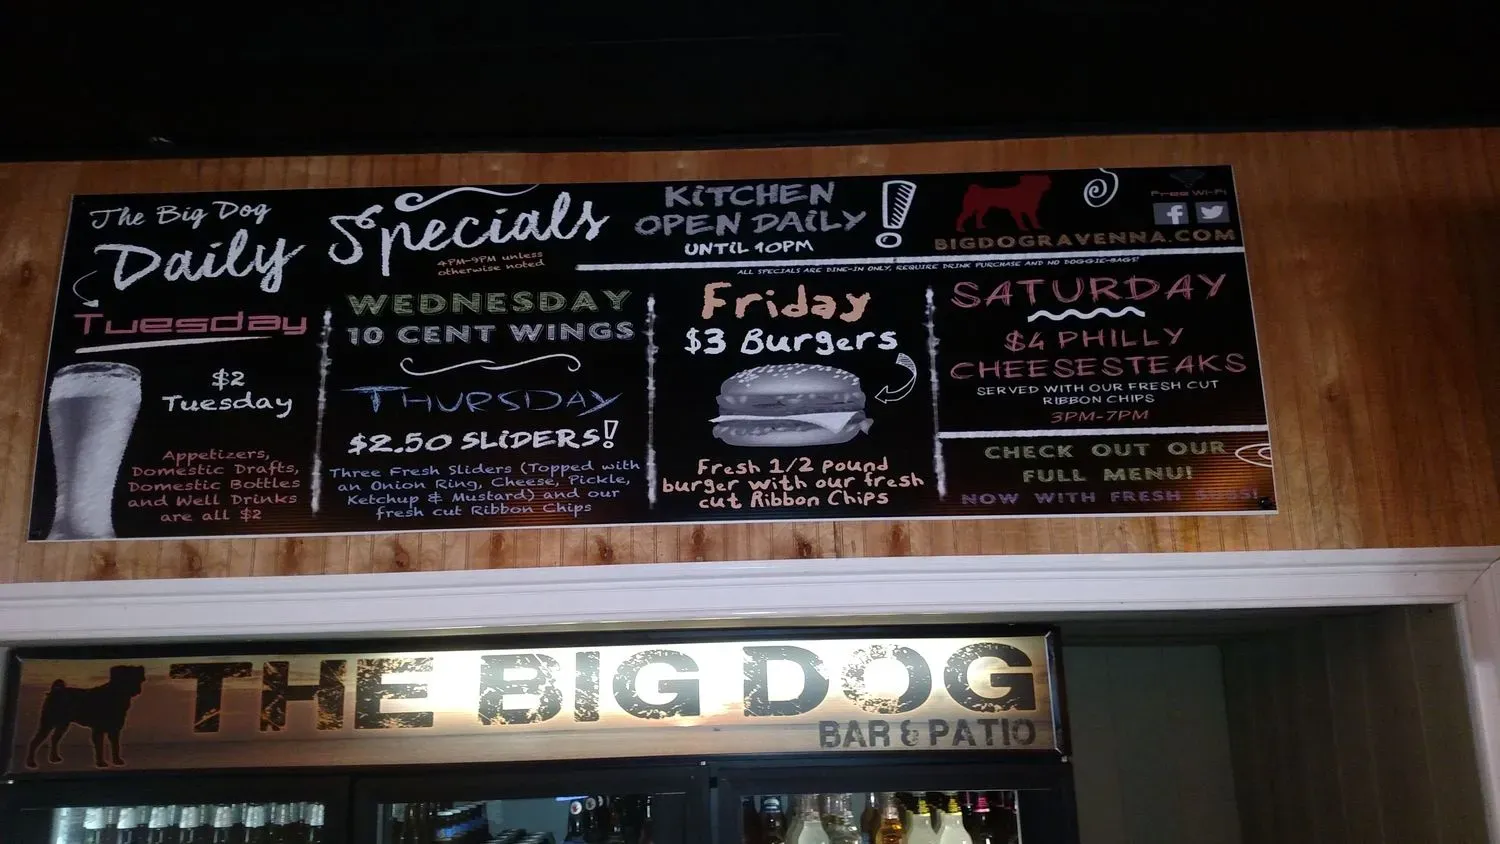 The Big Dog
Daily Specials
4PM-9PM unless
otherwise noted
KiTCHEN
OPEN DAiLY
UNTiL 10PM
!
Free Wi-Fi
BIGDOGRAVENNA.COM
ALL SPECIALS ARE DINE-IN ONLY, REQUIRE DRINK PURCHASE AND NO DOGGIE-BAGS!
Tuesday
$2
Tuesday
Appetizers,
Domestic Drafts,
Domestic Bottles
and Well Drinks
are all $2
WEDNESDAY
10 CENT WINGS
THURSDAY
$2.50 SLiDERS!
Three Fresh Sliders (Topped with
an Onion Ring, Cheese, Pickle,
Ketchup & Mustard) and our
fresh cut Ribbon Chips
Friday
$3 Burgers
Fresh 1/2 Pound
burger with our fresh
cut Ribbon Chips
SATURDAY
$4 PHILLY
CHEESESTEAKS
SERVED WITH OUR FRESH CUT
RIBBON CHIPS
3PM-7PM
CHECK OUT OUR
FULL MENU!
NOW WITH FRESH
THE BIG DOG
BAR & PATIO